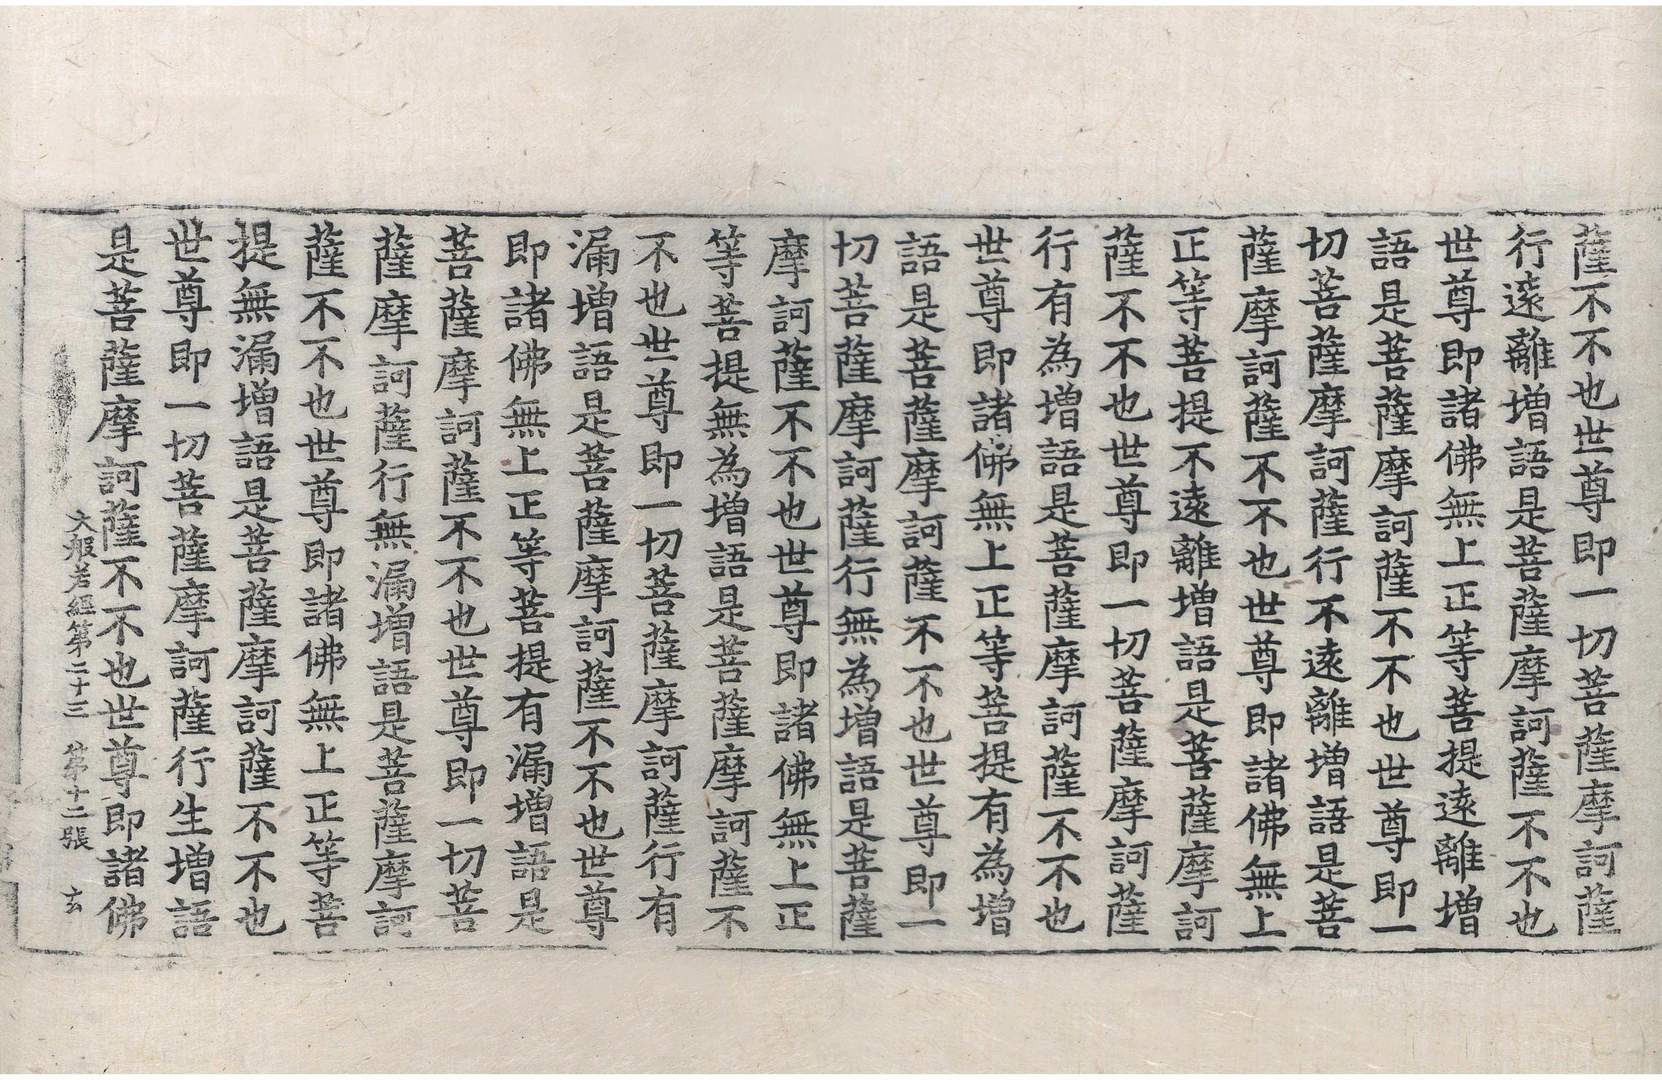 薩不不也世尊即一切菩薩摩訶薩
行遠離增語是菩薩摩訶薩不不也
世尊即諸佛無上正等菩提遠離增
語是菩薩摩訶薩不不也世尊即一
切菩薩摩訶薩行不遠離增語是菩
薩摩訶薩不不也世尊即諸佛無上
正等菩提不遠離增語是菩薩摩訶
薩不不也世尊即一切菩薩摩訶薩
行有為增語是菩薩摩訶薩不不也
世尊即諸佛無上正等菩提有為增
語是菩薩摩訶薩不不也世尊即一
切菩薩摩訶薩行無為增語是菩薩
摩訶薩不不也世尊即諸佛無上正
等菩提無為增語是菩薩摩訶薩不
不也世尊即一切菩薩摩訶薩行有
漏增語是菩薩摩訶薩不不也世尊
即諸佛無上正等菩提有漏增語是
菩薩摩訶薩不不也世尊即一切菩
薩摩訶薩行無漏增語是菩薩摩訶
薩不不也世尊即諸佛無上正等菩
提無漏增語是菩薩摩訶薩不不也
世尊即一切菩薩摩訶薩行生增語
是菩薩摩訶薩不不也世尊即諸佛
大般若經第二十三 第十二張 玄